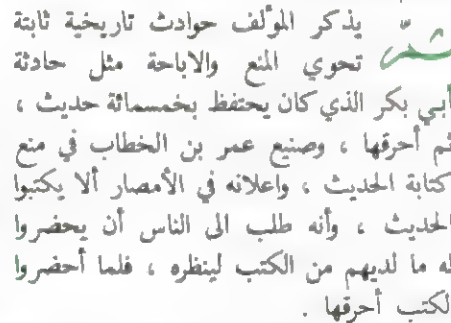 ثمّ يذكر المؤلف حوادث تاريخية ثابتة
تحوي المنع والاباحة مثل حادثة
أبي بكر الذي كان يحتفظ بخمسمائة حديث ،
ثم أحرقها ، وصنيع عمر بن الخطاب في منع
كتابة الحديث ، واعلانه في الأمصار ألا يكتبوا
الحديث ، وأنه طلب الى الناس أن يحضروا
له ما لديهم من الكتب لينظره ، فلما أحضروا
لكتب أحرقها .